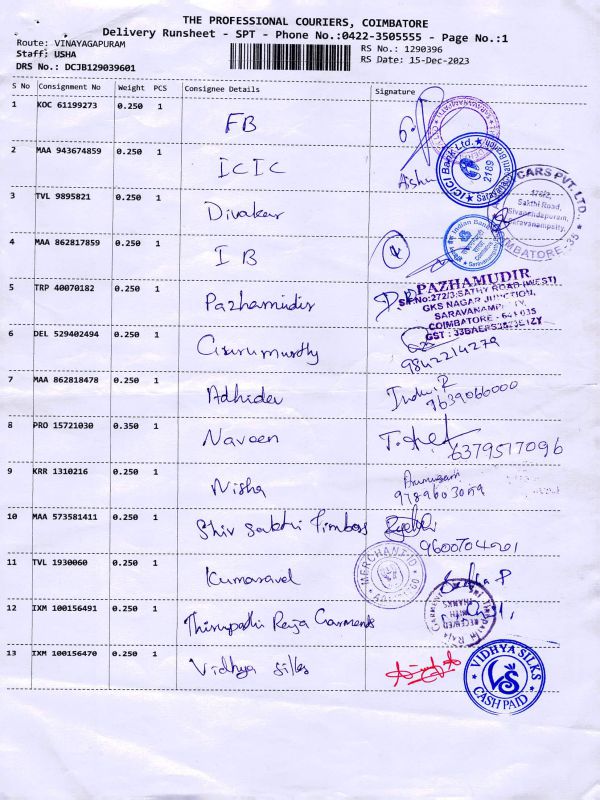 THE PROFESSIONAL COURIERS, COIMBATORE
Delivery Runsheet - SPT - Phone No.:0422-3505555 - Page No.:1
Route: VINAYAGAPURAM
Staff: USHA
DRS No.: DCJB129039601
RS No.: 1290396
RS Date: 15-Dec-2023
S No Consignment No Weight PCS Consignee Details Signature
1 KOC 61199273 0.250 1 FB
2 MAA 943674859 0.250 1 ICIC Aishu
ICICI Bank Ltd. 2189
3 TVL 9895821 0.250 1 Divakar
CARS PVT. LTD.
Sakthi Road,
Sivanandapuram,
Saravanampatty,
COIMBATORE-35
4 MAA 862817859 0.250 1 IB
Indian Bank
5 TRP 40070182 0.250 1 Pazhamudir
PAZHAMUDIR
SF No:272/3,SATHY ROAD (WEST)
GKS NAGAR JUNCTION,
SARAVANAMPATTY,
COIMBATORE - 641 035
6 DEL 529402494 0.250 1 Gurumurthy
9842214279
7 MAA 862818478 0.250 1 Adhidev
7639066000
8 PRO 15721030 0.350 1 Naveen
6379577096
9 KRR 1310216 0.250 1 Nisha
10 MAA 573581411 0.250 1 Shiv Sakthi Timbers
11 TVL 1930060 0.250 1 Kumaravel
MERCHANT ID
12 IXM 100156491 0.250 1 Thirupathi Raja Garments
RECEIVED
WITH
THANKS
13 IXM 100156470 0.250 1 Vidhya Silks
VIDHYA SILKS
VS
CASH PAID